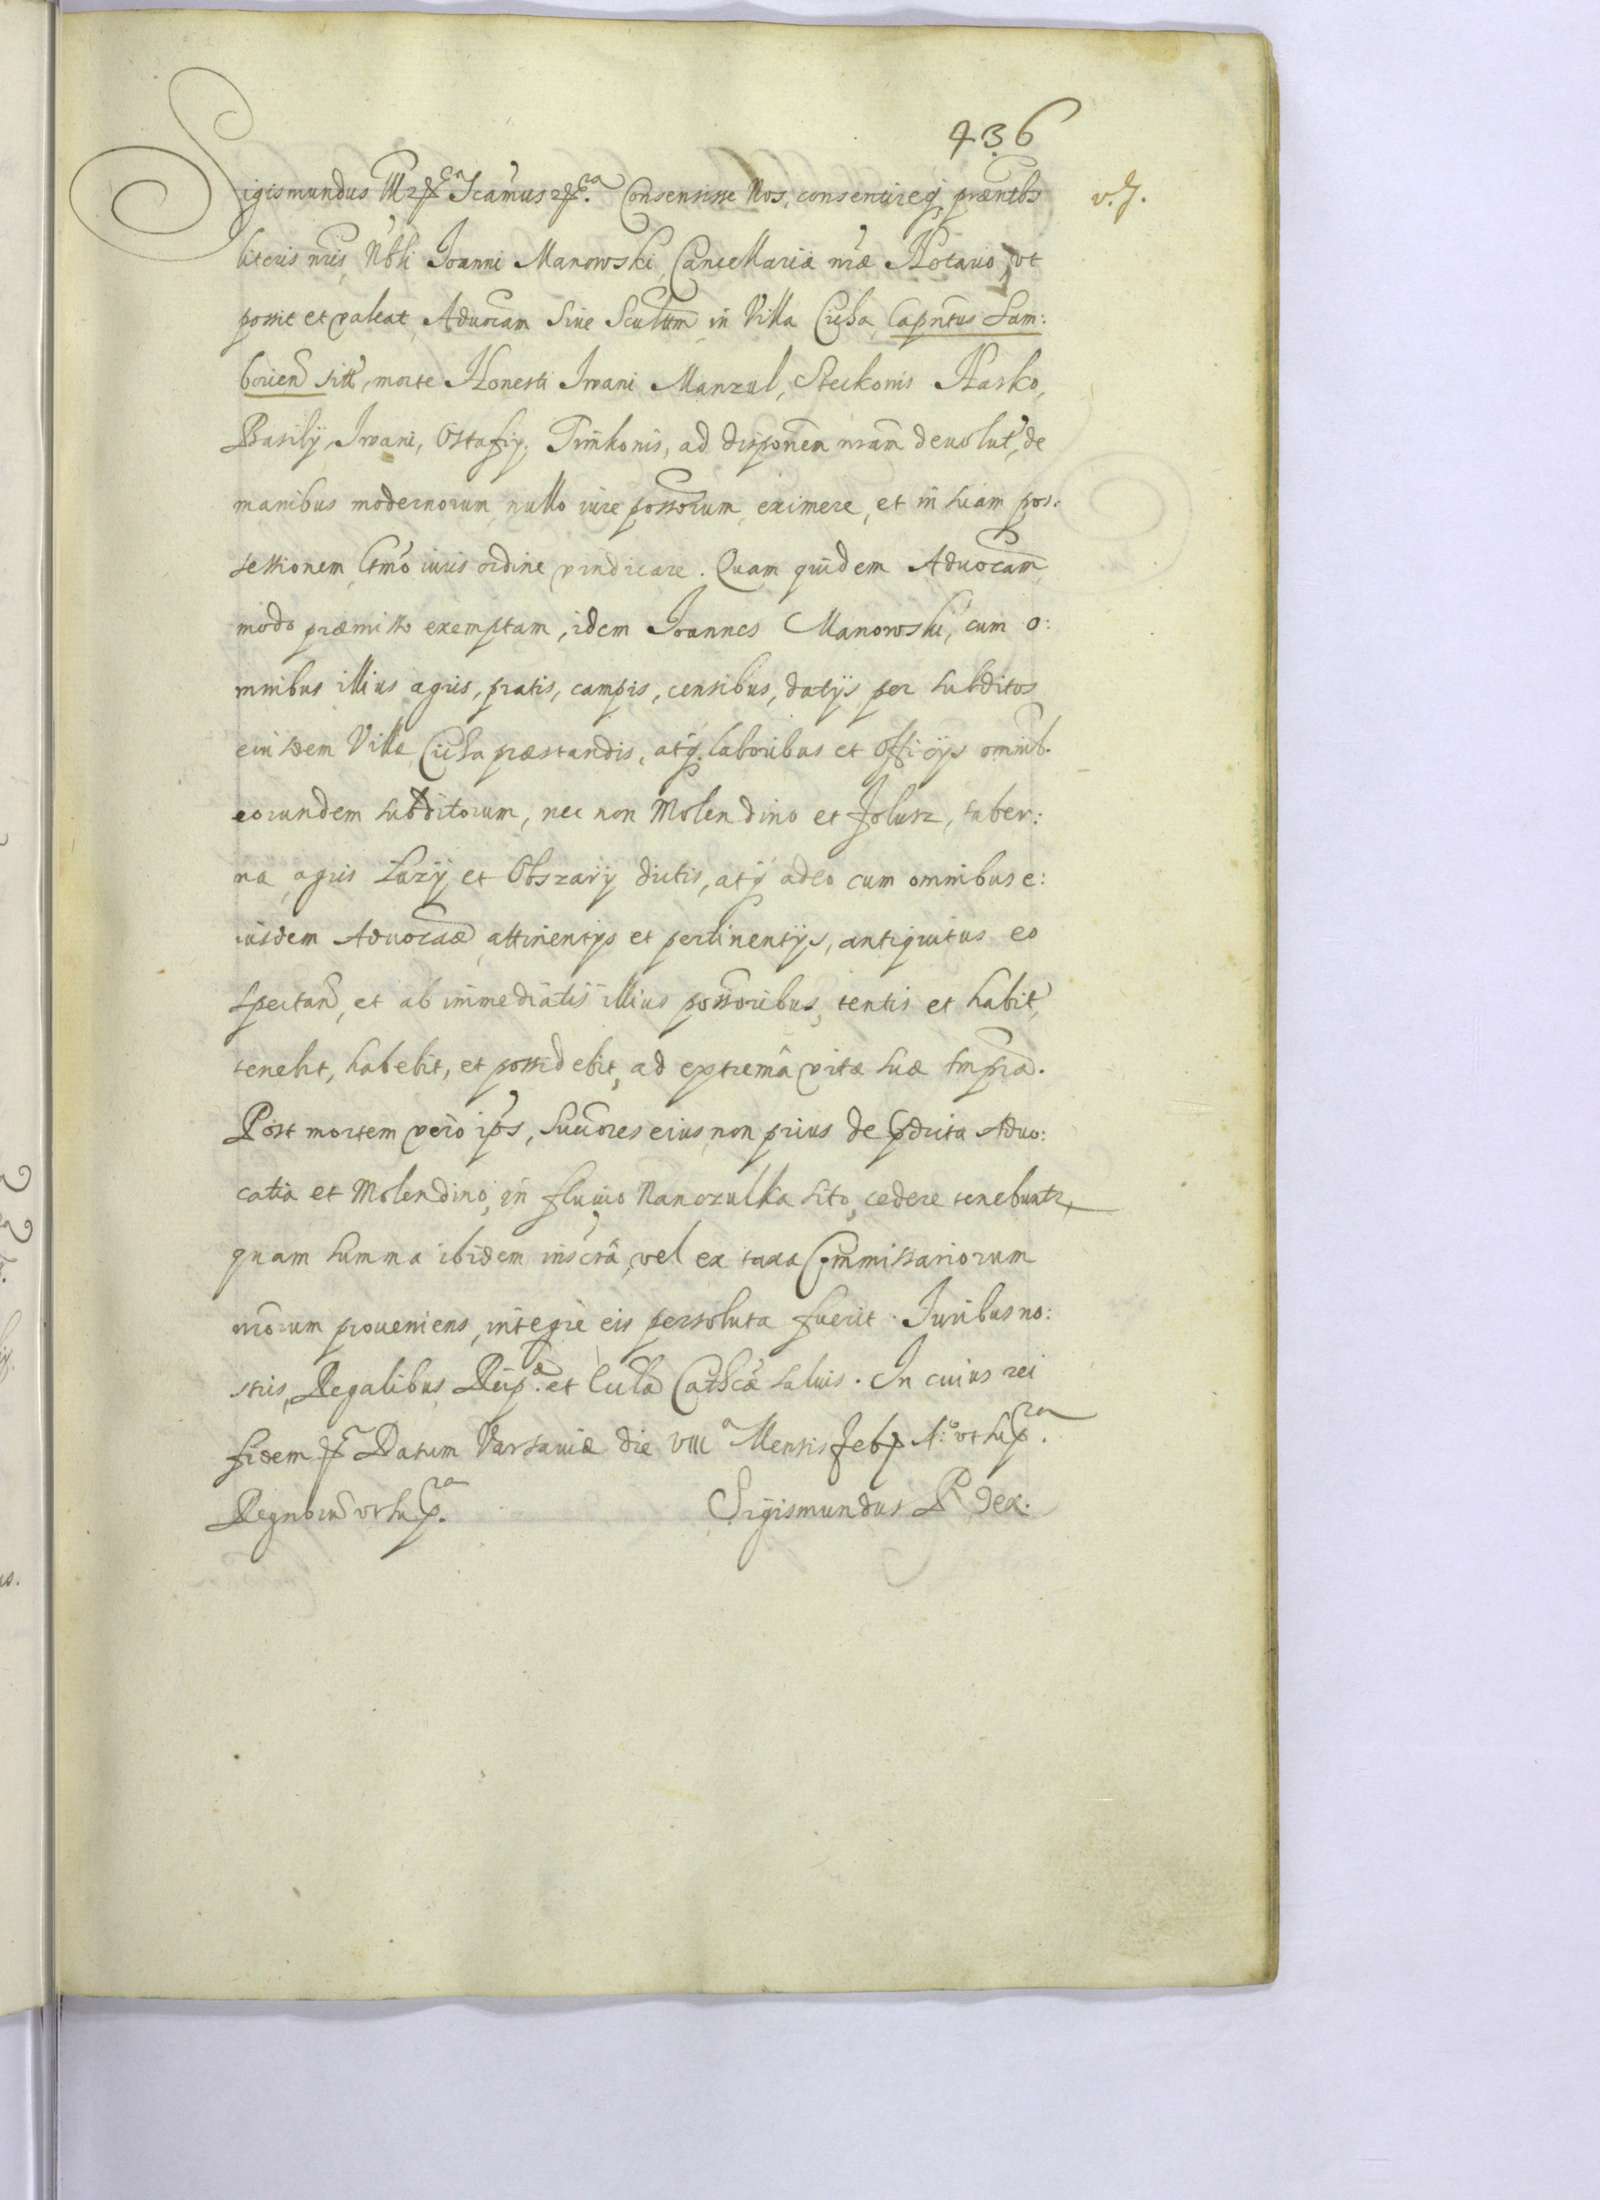 436
Sigismundus III etc. Scamus etc. Consensisse Nos, consentireq. præntbs
v. J.
literis nris, Nbli Joanni Manowski, Cancellariæ nræ Notario, vt
possit et valeat, Aduocam Siue Scultm in Villa Cicha, Capntus Sam:
borien sitt, morte Honesti Iwani Manzul, Steckonis Hasko,
Basilij, Iwani, Ostafij, Timkonis, ad disponem nram deuolut, de
manibus modernorum, nullo iure possorum, eximere, et in suam pos:
sessionem, ltmo iuris ordine vindicare. Quam quidem Aduocam
modo præmisso exemptam, idem Joannes Manowski, cum o:
mnibus illius agris, pratis, campis, censibus, datijs per subditos
eiusdem Villæ Cicha præstandis, atq. laboribus et officijs omnib.
eorundem subditorum, nec non Molendino et folusz, taber:
na, agris Lazy et Obszary dictis, atq adeo cum omnibus e:
iusdem Aduocaæ attinentijs et pertinentijs, antiquitus eo
spectan, et ab immediatis illius possoribus, tentis et habit,
tenebit, habebit, et possidebit, ad extrema vitæ suæ tmpra.
Post mortem vero ips, succores eius, non prius de pdicta Aduo:
catia et Molendino, in fluuio Nanczulka sito, cedere tenebuntr,
quam summa ibidem inscra, vel ex taxa Commissariorum
nrorum proueniens, integre eis persoluta fuerit. Juribus no:
stris, Regalibus, Reip. et Eccla Cathcæ saluis. In cuius rei
fidem etc. Datum Varsauiæ die VIII Mensis Feb. A. vt supra.
Regnorū vt supra. Sigismundus Rex.